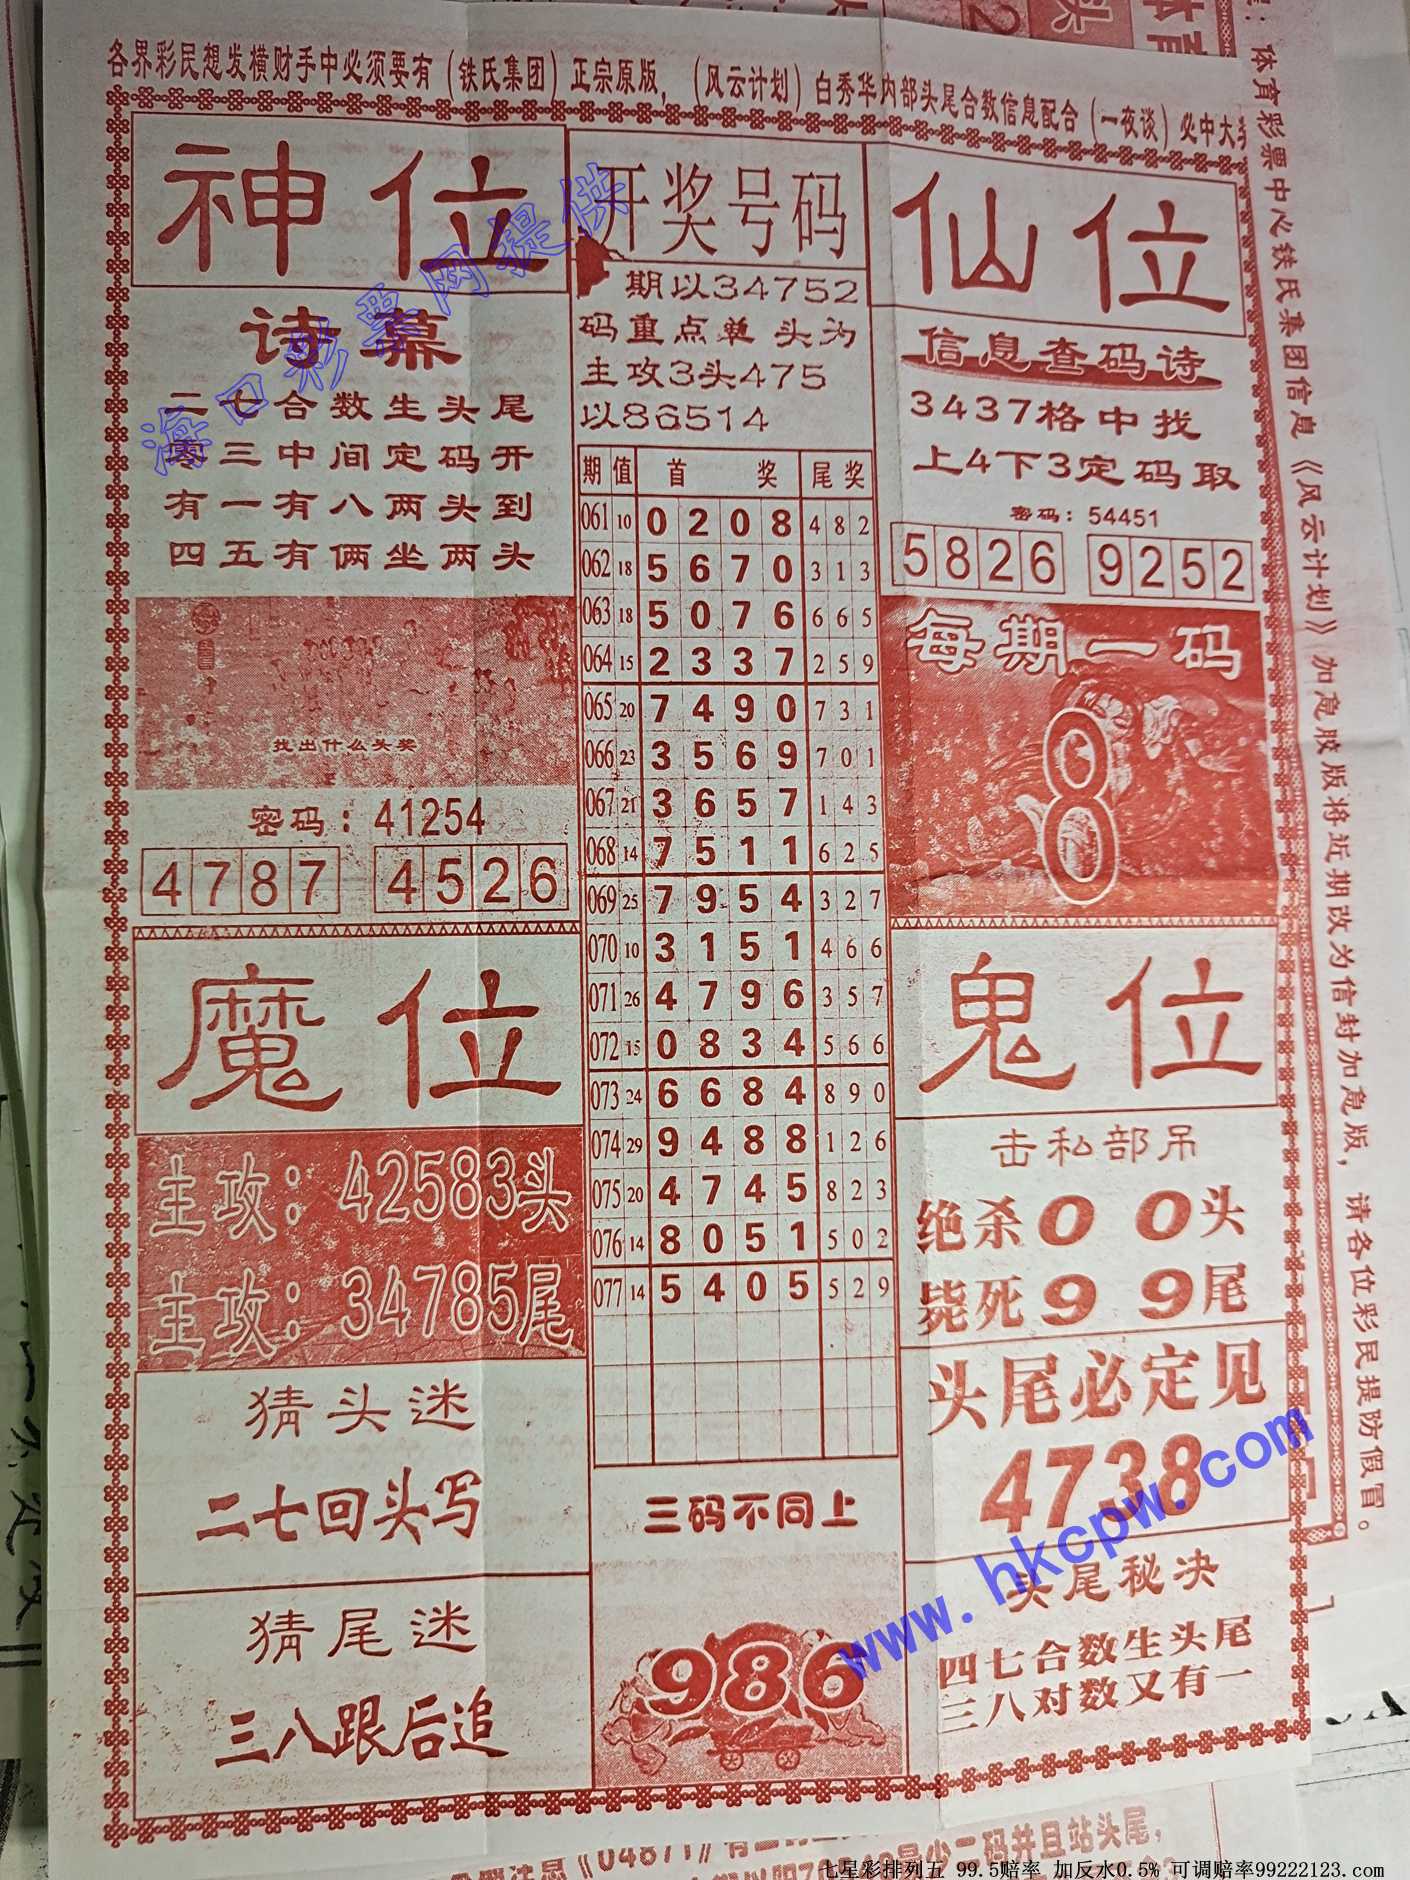 各界彩民想发横财手中必须要有（铁氏集团）正宗原版，（风云计划）白秀华内部头尾合数信息配合（一夜谈）必中大
神位
诗幕
二七合数生头尾
零三中间定码开
有一有八两头到
四五有俩坐两头
找出什么头奖
密码：41254
4787 4526
开奖号码
期以34752
码重点单 头为
主攻3头475
以86514
期 值 首 奖 尾 奖
061 10 0 2 0 8 4 8 2
062 18 5 6 7 0 3 1 3
063 18 5 0 7 6 6 6 5
064 15 2 3 3 7 2 5 9
065 20 7 4 9 0 7 3 1
066 23 3 5 6 9 7 0 1
067 21 3 6 5 7 1 4 3
068 14 7 5 1 1 6 2 5
069 25 7 9 5 4 3 2 7
070 10 3 1 5 1 4 6 6
071 26 4 7 9 6 3 5 7
072 15 0 8 3 4 5 6 6
073 24 6 6 8 4 8 9 0
074 29 9 4 8 8 1 2 6
075 20 4 7 4 5 8 2 3
076 14 8 0 5 1 5 0 2
077 14 5 4 0 5 5 2 9
三码不同上
986
仙位
信息查码诗
3437格中找
上4下3定码取
密码：54451
5826 9252
每期一码
8
魔位
主攻：42583头
主攻：34785尾
猜头迷
二七回头写
猜尾迷
三八跟后追
鬼位
击私部吊
绝杀0 0头
毙死9 9尾
头尾必定见
4738
头尾秘决
四七合数生头尾
三八对数又有一
体育彩票中心铁氏集团信息《风云计划》加急胶版将近期改为信封加急版，请各位彩民提防假冒。
海口彩票网提供
www.hkcpw.com
七星彩排列五 99.5赔率 加反水0.5% 可调赔率99222123.com